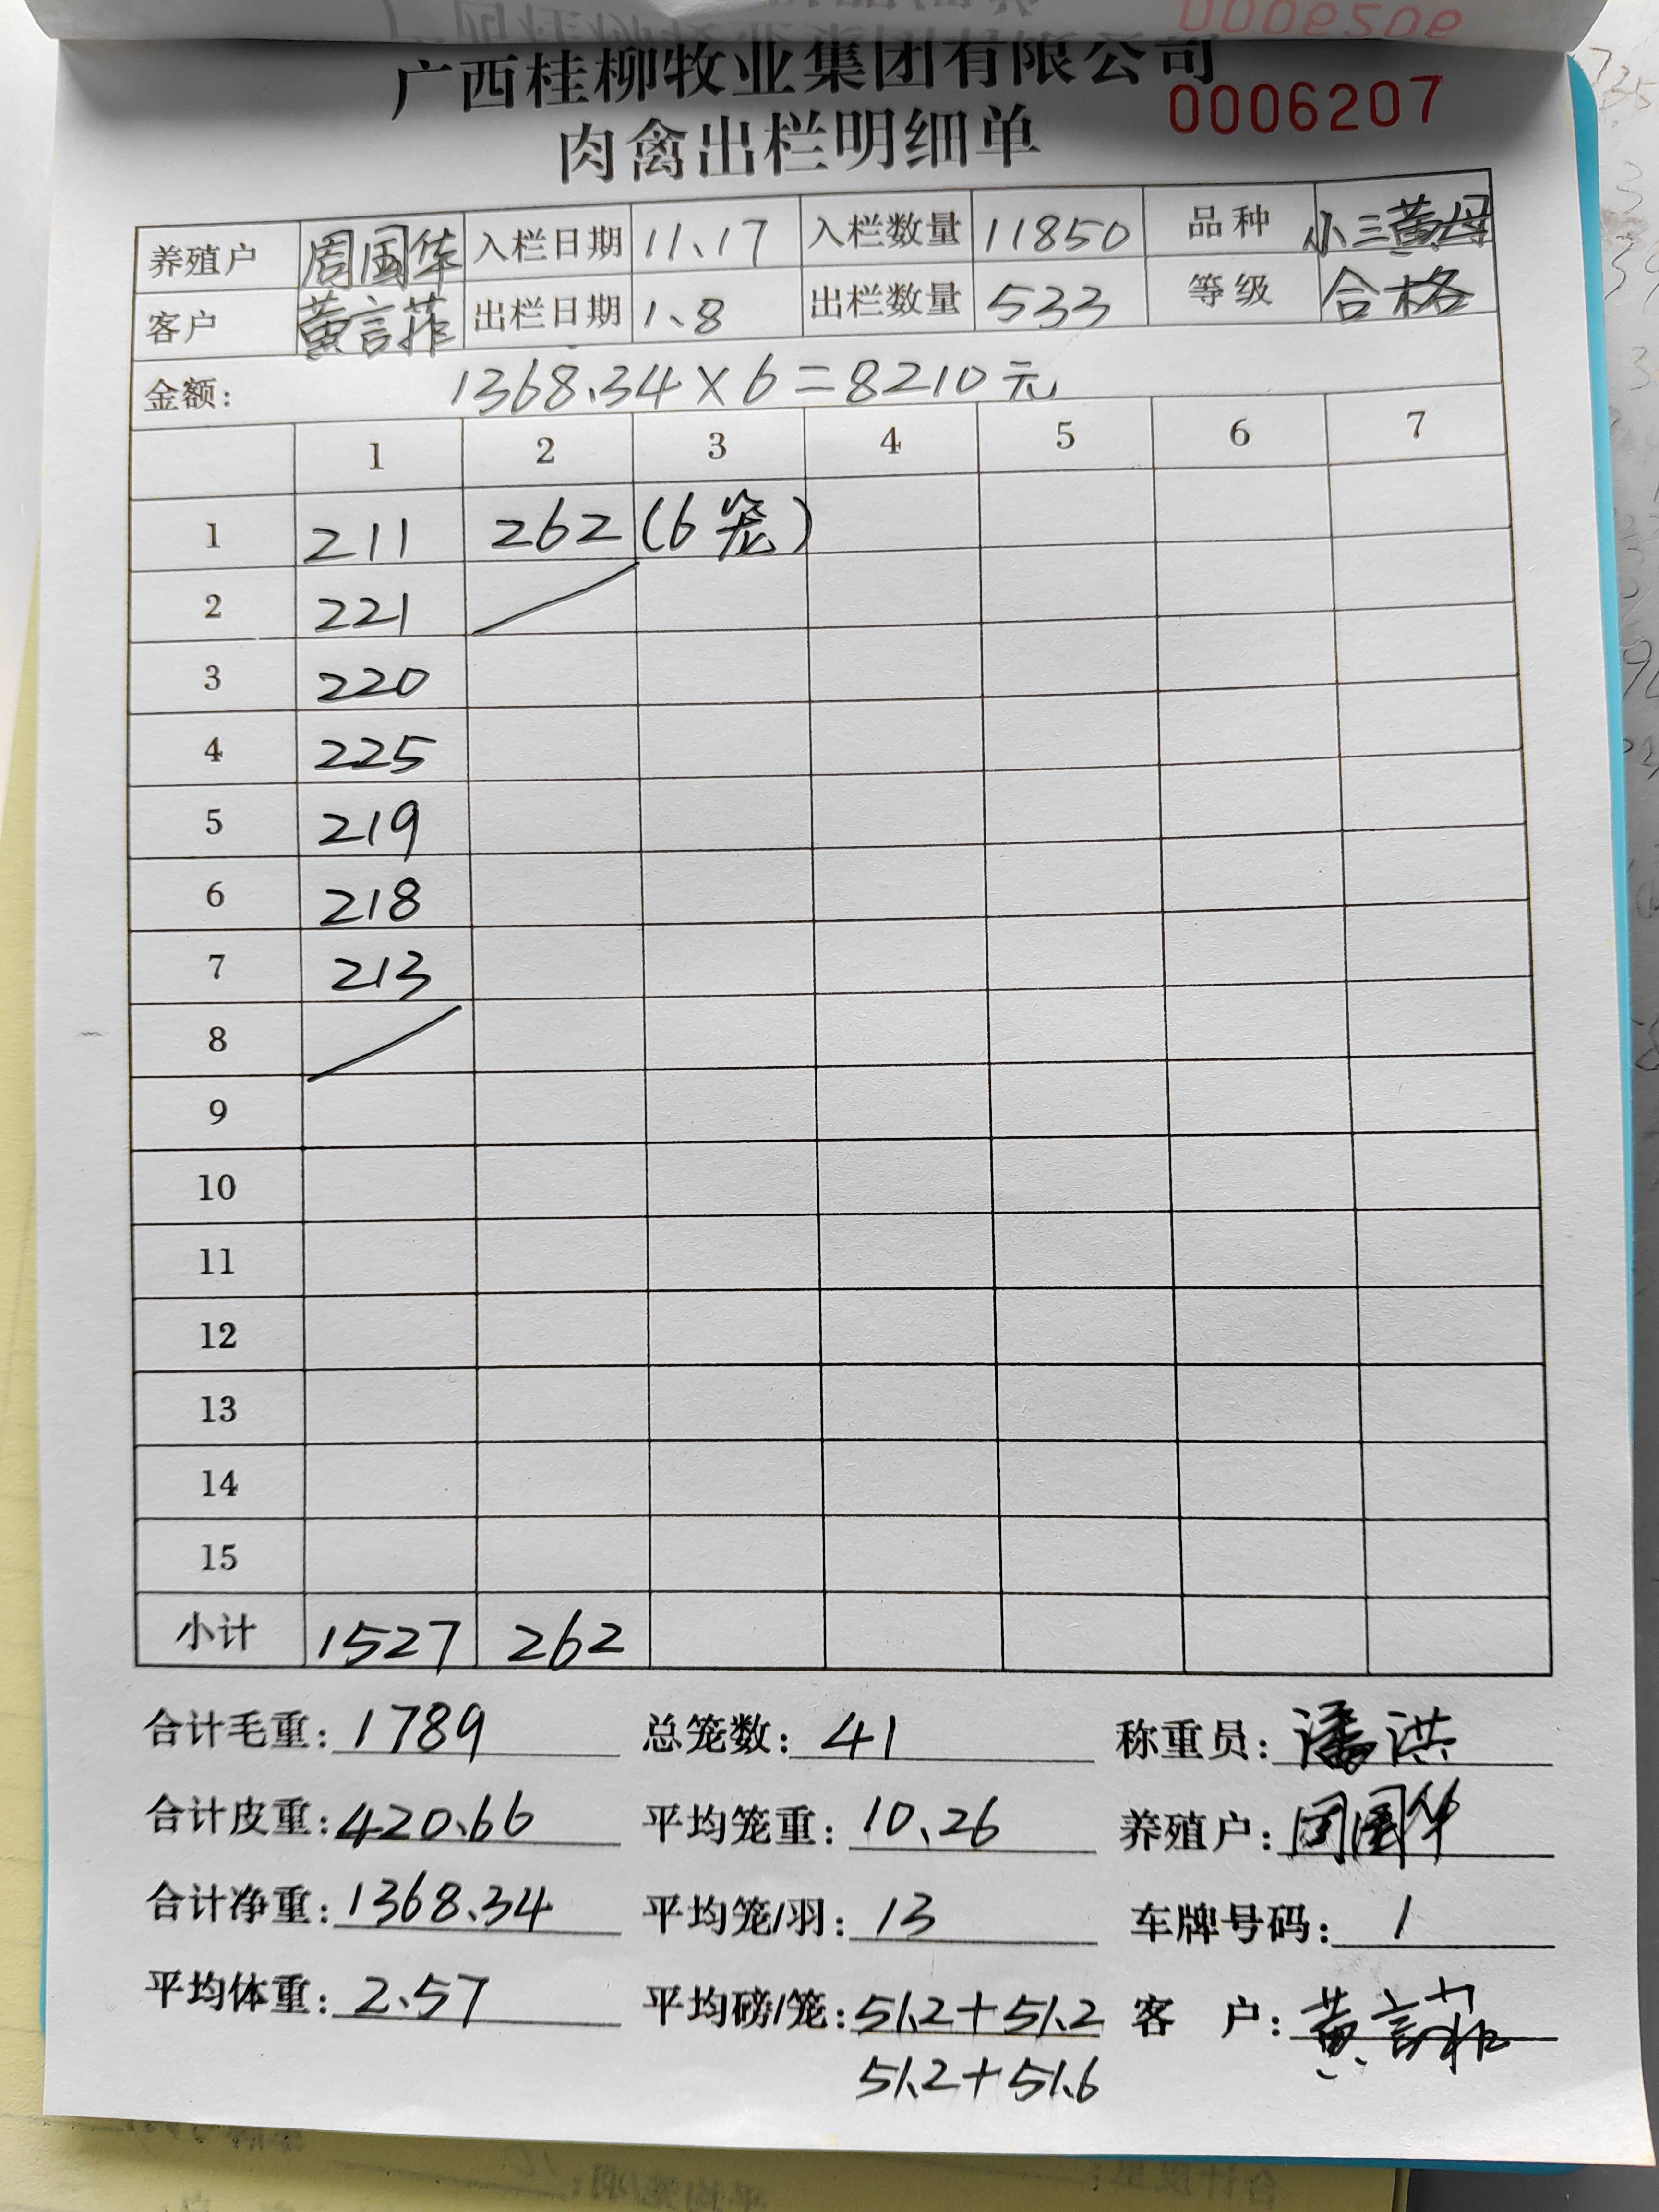 广西桂柳牧业集团有限公司
0006207
肉禽出栏明细单
养殖户 周国华 入栏日期 11、17 入栏数量 11850 品种 小三黄母
客户 黄言菲 出栏日期 1、8 出栏数量 533 等级 合格
金额: 1368.34×6=8210元
1 2 3 4 5 6 7
1 211 262 (6笼)
2 221
3 220
4 225
5 219
6 218
7 213
8
9
10
11
12
13
14
15
小计 1527 262
合计毛重: 1789 总笼数: 41 称重员: 潘洪
合计皮重: 420.66 平均笼重: 10.26 养殖户: 周国华
合计净重: 1368.34 平均笼/羽: 13 车牌号码: 1
平均体重: 2.57 平均磅/笼: 51.2+51.2 客 户: 黄言
51.2+51.6